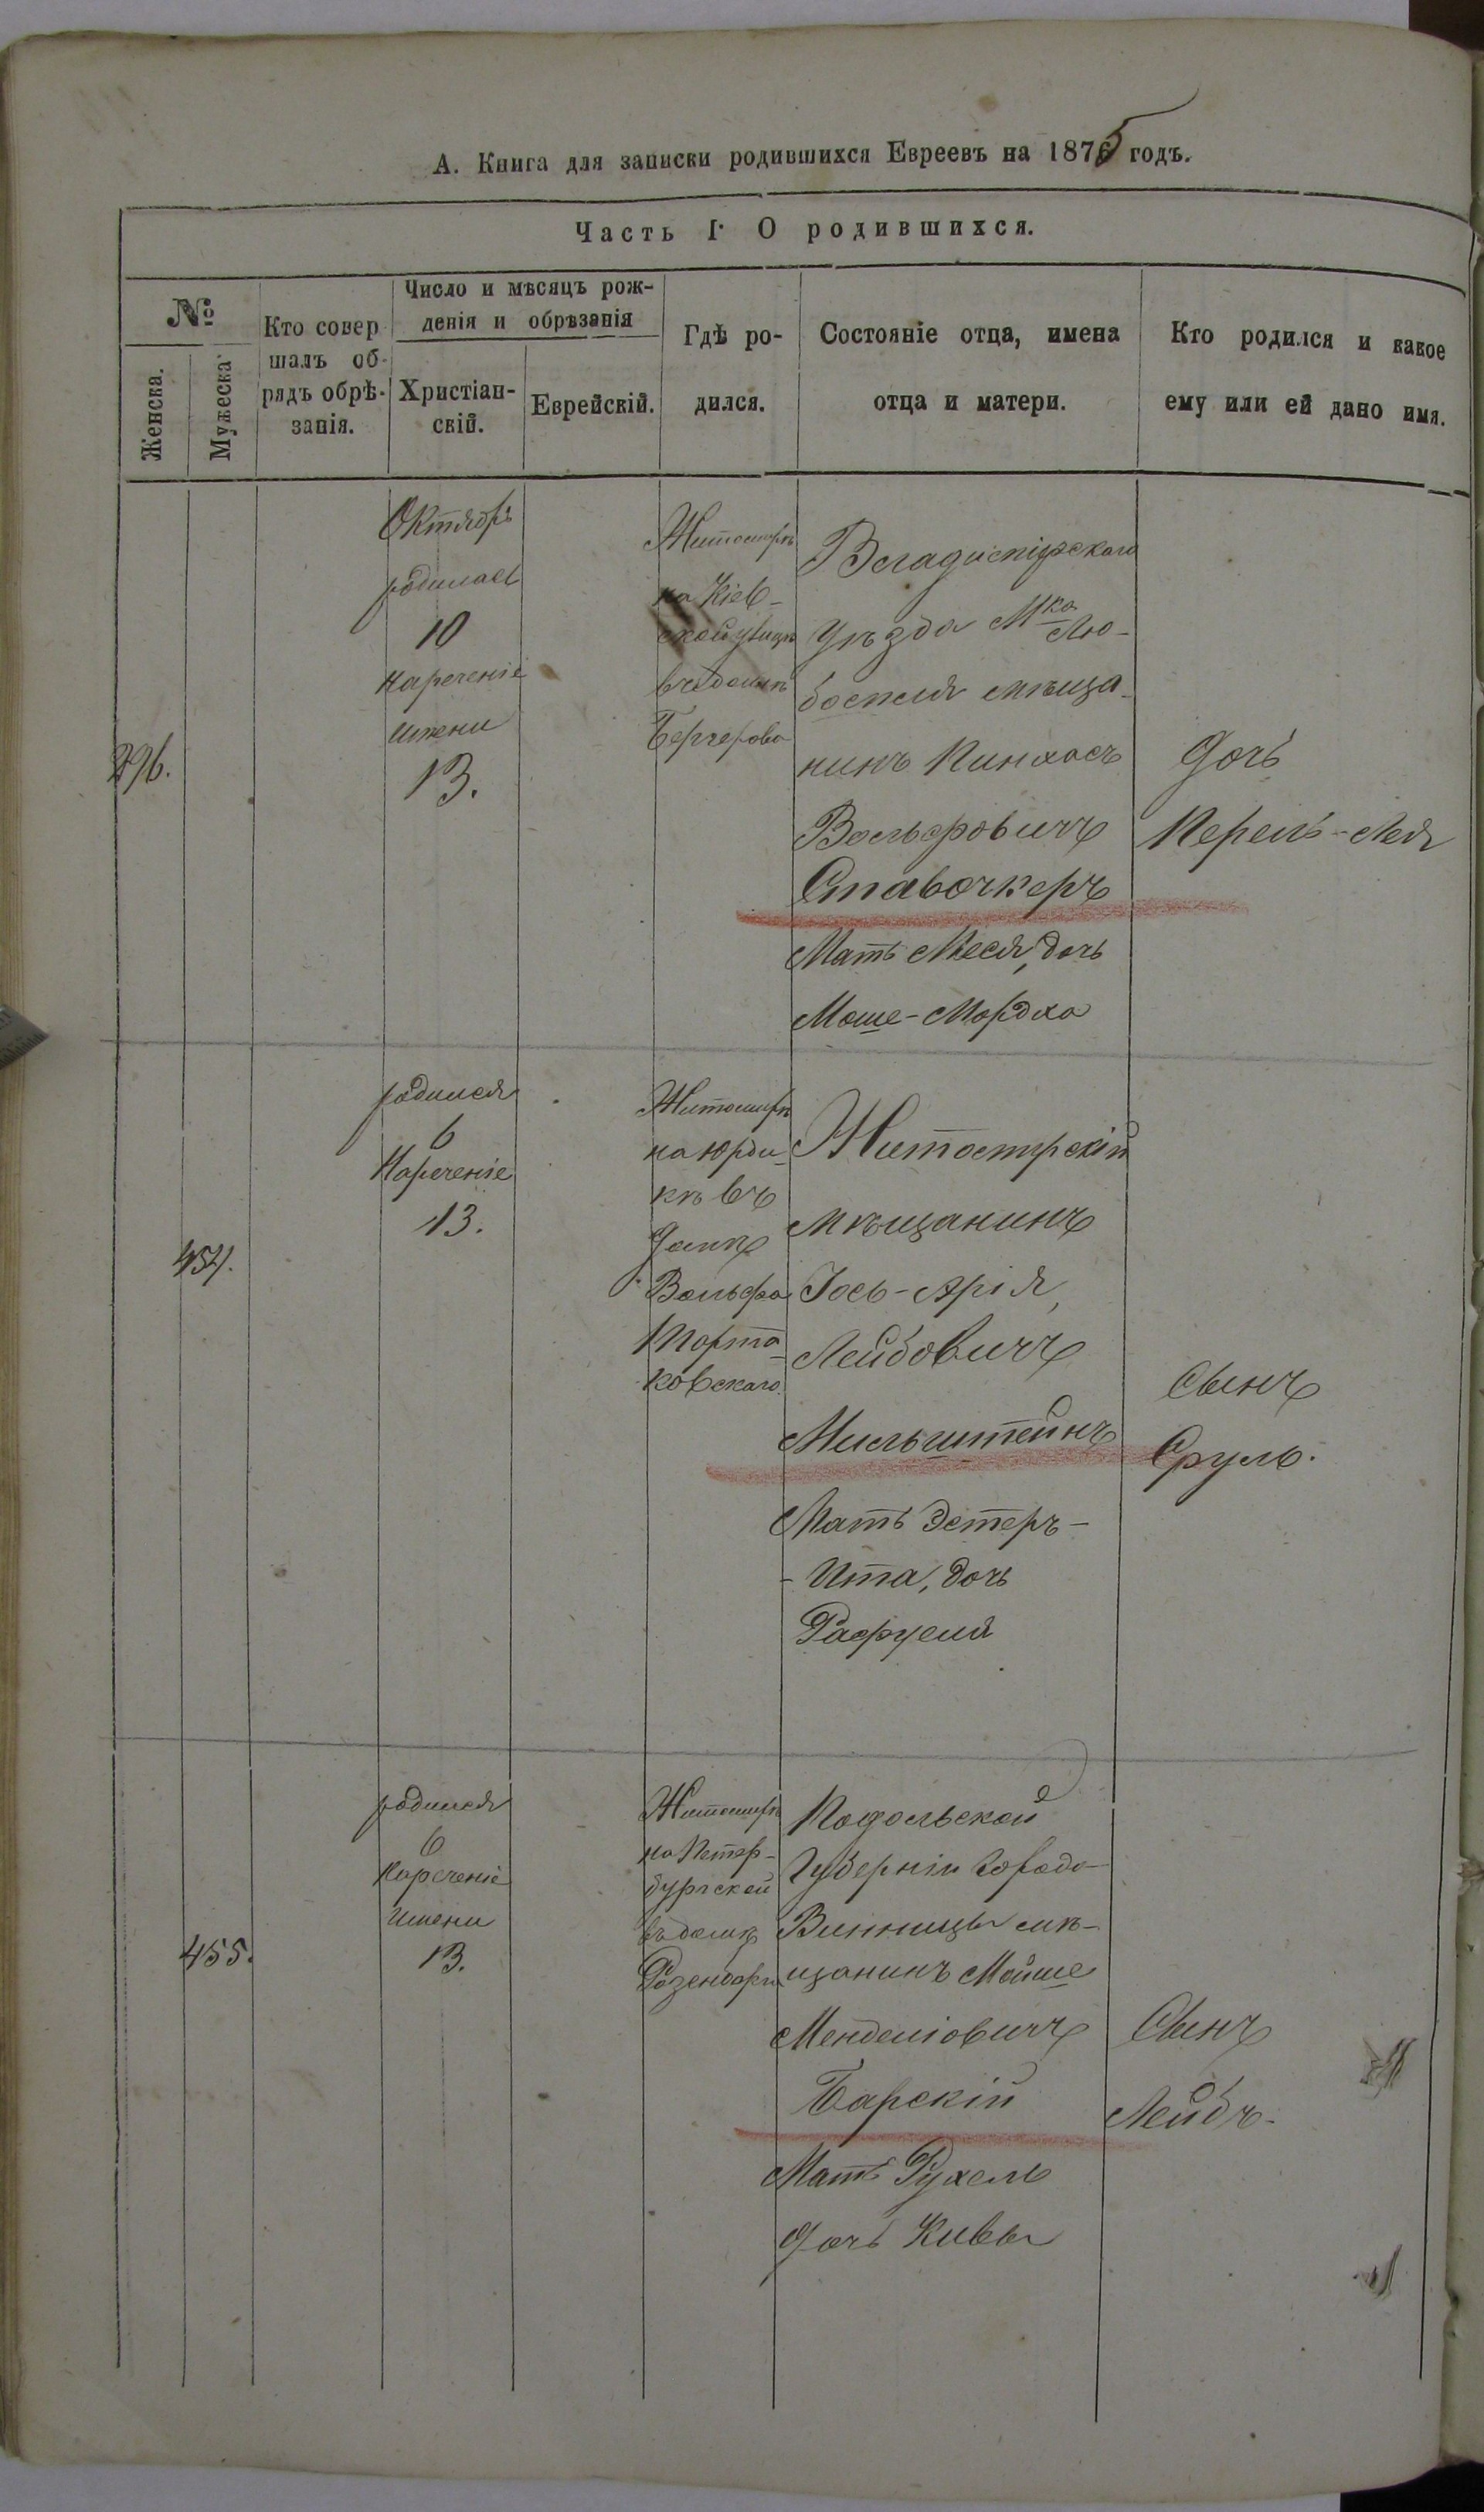 А. Книга для записки родившихся Евреевъ на 1875 годъ.
Часть I. О родившихся.
№
Женска.
Мужеска
Кто совер
шалъ об-
рядъ обрѣ-
занія.
Число и мѣсяцъ рож-
денія и обрѣзанія
Христіан-
скій.
Еврейскій.
Гдѣ ро-
дился.
Состояніе отца, имена
отца и матери.
Кто родился и какое
ему или ей дано имя.
296.
Октябрь
родилась
10
нареченіе
имени
13.
Житомирѣ
на Кіев-
ской улицѣ
въ домѣ
Владимірскаго
Уѣзда Мка Лю-
бомля мѣща-
нинъ Пинхасъ
Вольфовичъ
Ставочкеръ
Мать Меся, дочь
Моше-Мордха
Дочь
Перель-Лея
454.
родился
6
Нареченіе
13.
Житомирѣ
на юрди-
кѣ въ
Домѣ
Вольфа
Порто-
ковскаго
Житомирскій
мѣщанинъ
Іось-Арія
Лейбовичъ
Мильштейнъ
Мать Эстеръ-
-Ита, дочь
Рафуеля
Сынъ
Сруль.
455.
родился
6
Нареченіе
имени
13.
Житомирѣ
на Петер-
бургской
въ домѣ
Подольской
Губерніи города
Винницы мѣ-
щанинъ Мойше
Менделіовичъ
Барскій
Мать Рухель
дочь Кивы
Сынъ
Лейбъ.